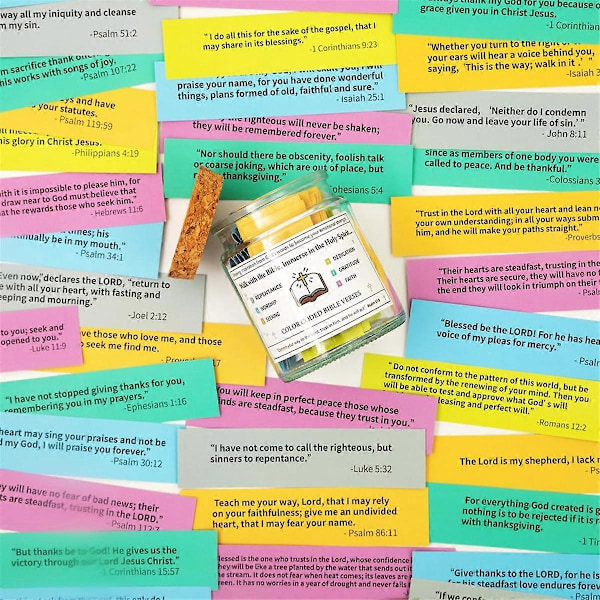 way all my iniquity and cleanse
m my sin.
-Psalm 51:2
"I do all this for the sake of the gospel, that I
may share in its blessings."
-1 Corinthians 9:23
always thank my God for you because of
grace given you in Christ Jesus.
-1 Corinthians
"Whether you turn to the right or
your ears will hear a voice behind you,
saying, 'This is the way; walk in it.' "
-Isaiah
m sacrifice thank
his works with songs of joy.
-Psalm 107:22
praise your name, for you have done wonderful
things, plans formed of old, faithful and sure."
- Isaiah 25:1
ys and have
your statutes.
- Psalm 119:59
righteous will never be shaken;
they will be remembered forever."
"Jesus declared, 'Neither do I condemn
you. Go now and leave your life of sin.' "
- John 8:11
his glory in Christ Jesus.
-Philippians 4:19
"Nor should there be obscenity, foolish talk
or coarse joking, which are out of place, but
thanksgiving."
ephesians 5:4
since as members of one body you were
called to peace. And be thankful."
-Colossians
ith it is impossible to please him, for
draw near to God must believe that
at he rewards those who seek him."
- Hebrews 11:6
"Trust in the Lord with all your heart and lean no
your own understanding; in all your ways submi
him, and he will make your paths straight."
-Proverbs
mes; his
nually be in my mouth."
-Psalm 34:1
Walk with the Bible, Immerse in the Holy Spirit...
REPENTANCE
WORSHIP
GIVING
DEDICATION
GRATITUDE
FAITH
COLOR CODED BIBLE VERSES
"Their hearts are steadfast, trusting in the
Their hearts are secure, they will have no
the end they will look in triumph on their
-Psalm
Even now," declares the LORD, "return to
e with all your heart, with fasting and
eeping and mourning."
-Joel 2:12
to you; seek and
opened to you."
-Luke 11:9
ove those who love me, and those
seek me find me.
"Blessed be the LORD! For he has hea
voice of my pleas for mercy."
-Psalm
"Do not conform to the pattern of this world, but be
transformed by the renewing of your mind. Then you
will be able to test and approve what God' s will
leasing and perfect will."
-Romans 12:2
"I have not stopped giving thanks for you,
remembering you in my prayers."
-Ephesians 1:16
ou will keep in perfect peace those whose
nds are steadfast, because they trust in you."
heart may sing your praises and not be
d my God, I will praise you forever."
-Psalm 30:12
"I have not come to call the righteous, but
sinners to repentance."
-Luke 5:32
The Lord is my shepherd, I lack n
-Psalm
ey will have no fear of bad news; their
ts are steadfast, trusting in the LORD."
-Psalm 112:7
Teach me your way, Lord, that I may rely
on your faithfulness; give me an undivided
heart, that I may fear your name.
- Psalm 86:11
For everything God created is g
nothing is to be rejected if it is r
with thanksgiving.
-1 Tim
"But thanks be to God! He gives us the
victory through our Lord Jesus Christ."
1 Corinthians 15:57
lessed is the one who trusts in the Lord, whose confidence
ey will be like a tree planted by the water that sends out it
he stream. It does not fear when heat comes; its leaves are
It has no worries in a year of drought and never fails
"Give thanks to the LORD, for he is
for his steadfast love endures forev
-Psalm
"If we confess